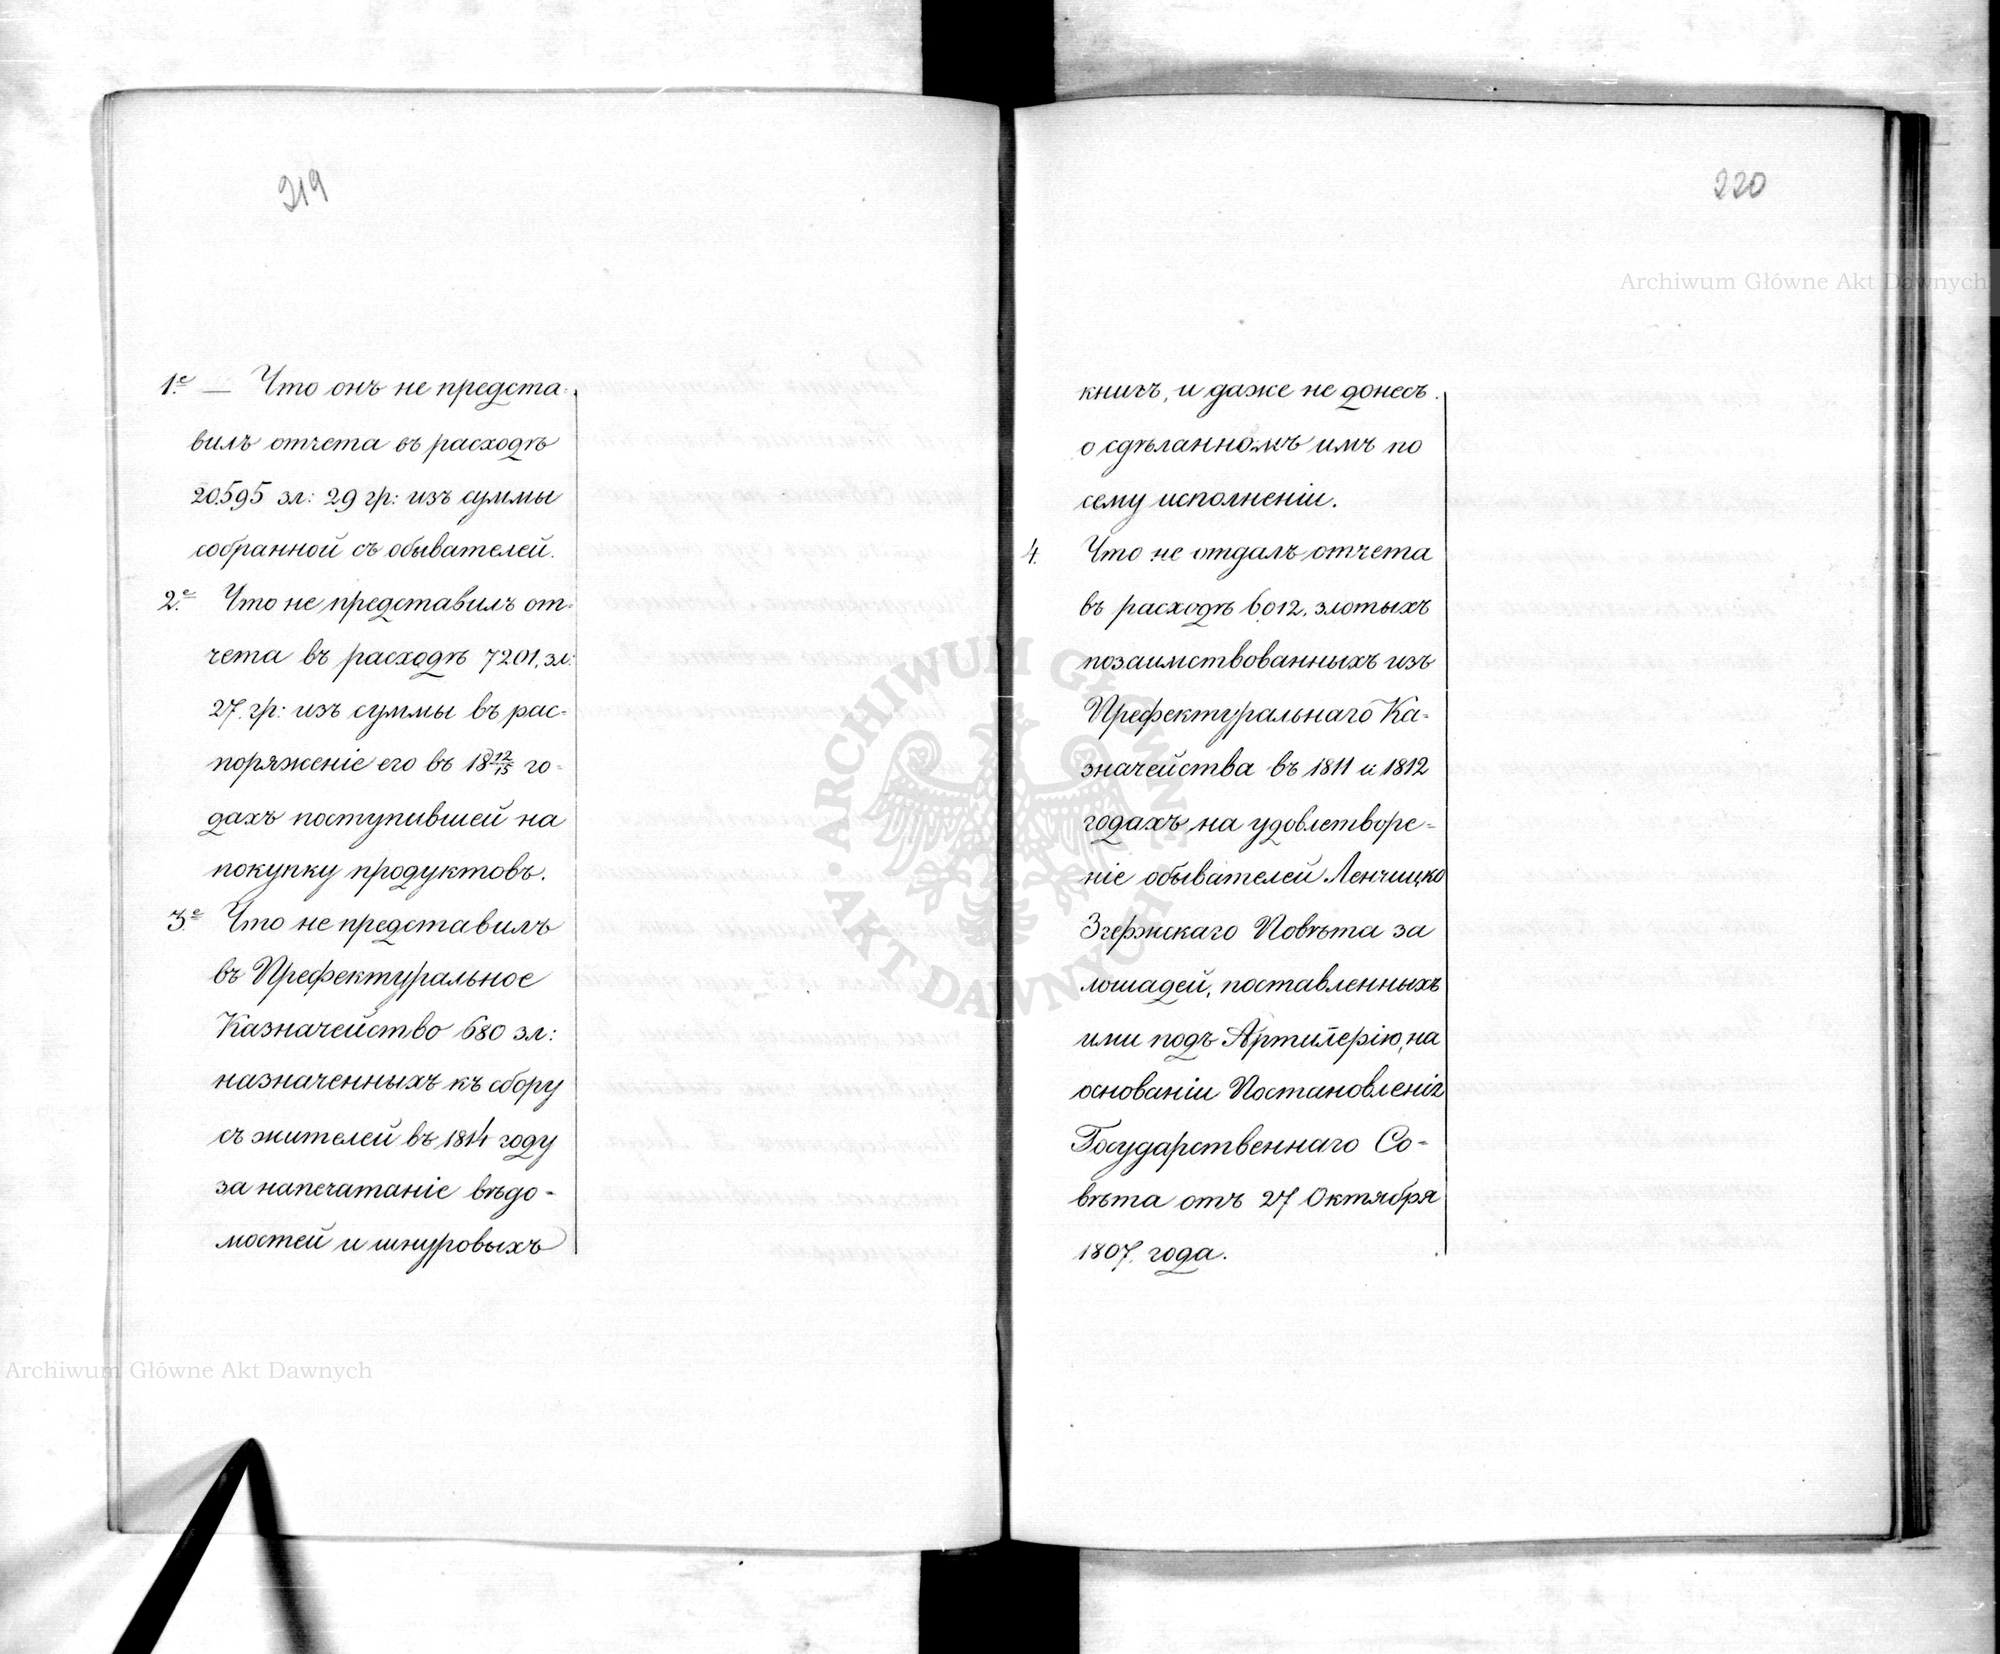 219
1.е — Что онъ не предста-
вилъ отчета въ расходѣ
20595 зл: 29 гр: изъ суммы
собранной съ обывателей.
2.е Что не представилъ от-
чета въ расходѣ 7201, зл:
27. гр: изъ суммы въ рас-
поряженіе его въ 18 12/15 го-
дахъ поступившей на
покупку продуктовъ.
3.е Что не представилъ
въ Префектуральное
Казначейство 680 зл:
назначенныхъ къ сбору
съ жителей въ 1814 году
за напечатаніе вѣдо-
мостей и шнуровыхъ
220
книгъ, и даже не донесъ
о сдѣланномъ имъ по
сему исполненіи.
4. Что не отдалъ отчета
въ расходѣ 6012. злотыхъ
позаимствованныхъ изъ
Префектуральнаго Ка-
значейства въ 1811 и 1812
годахъ, на удовлетворе-
ніе обывателей Ленчицко
Згержскаго Повѣта за
лошадей, поставленныхъ
ими подъ Артилерію, на
основаніи Постановленія
Государственнаго Со-
вѣта отъ 27 Октября
1807. года.
Archiwum Główne Akt Dawnych
Archiwum Główne Akt Dawnych
ARCHIWUM GŁÓWNE AKT DAWNYCH